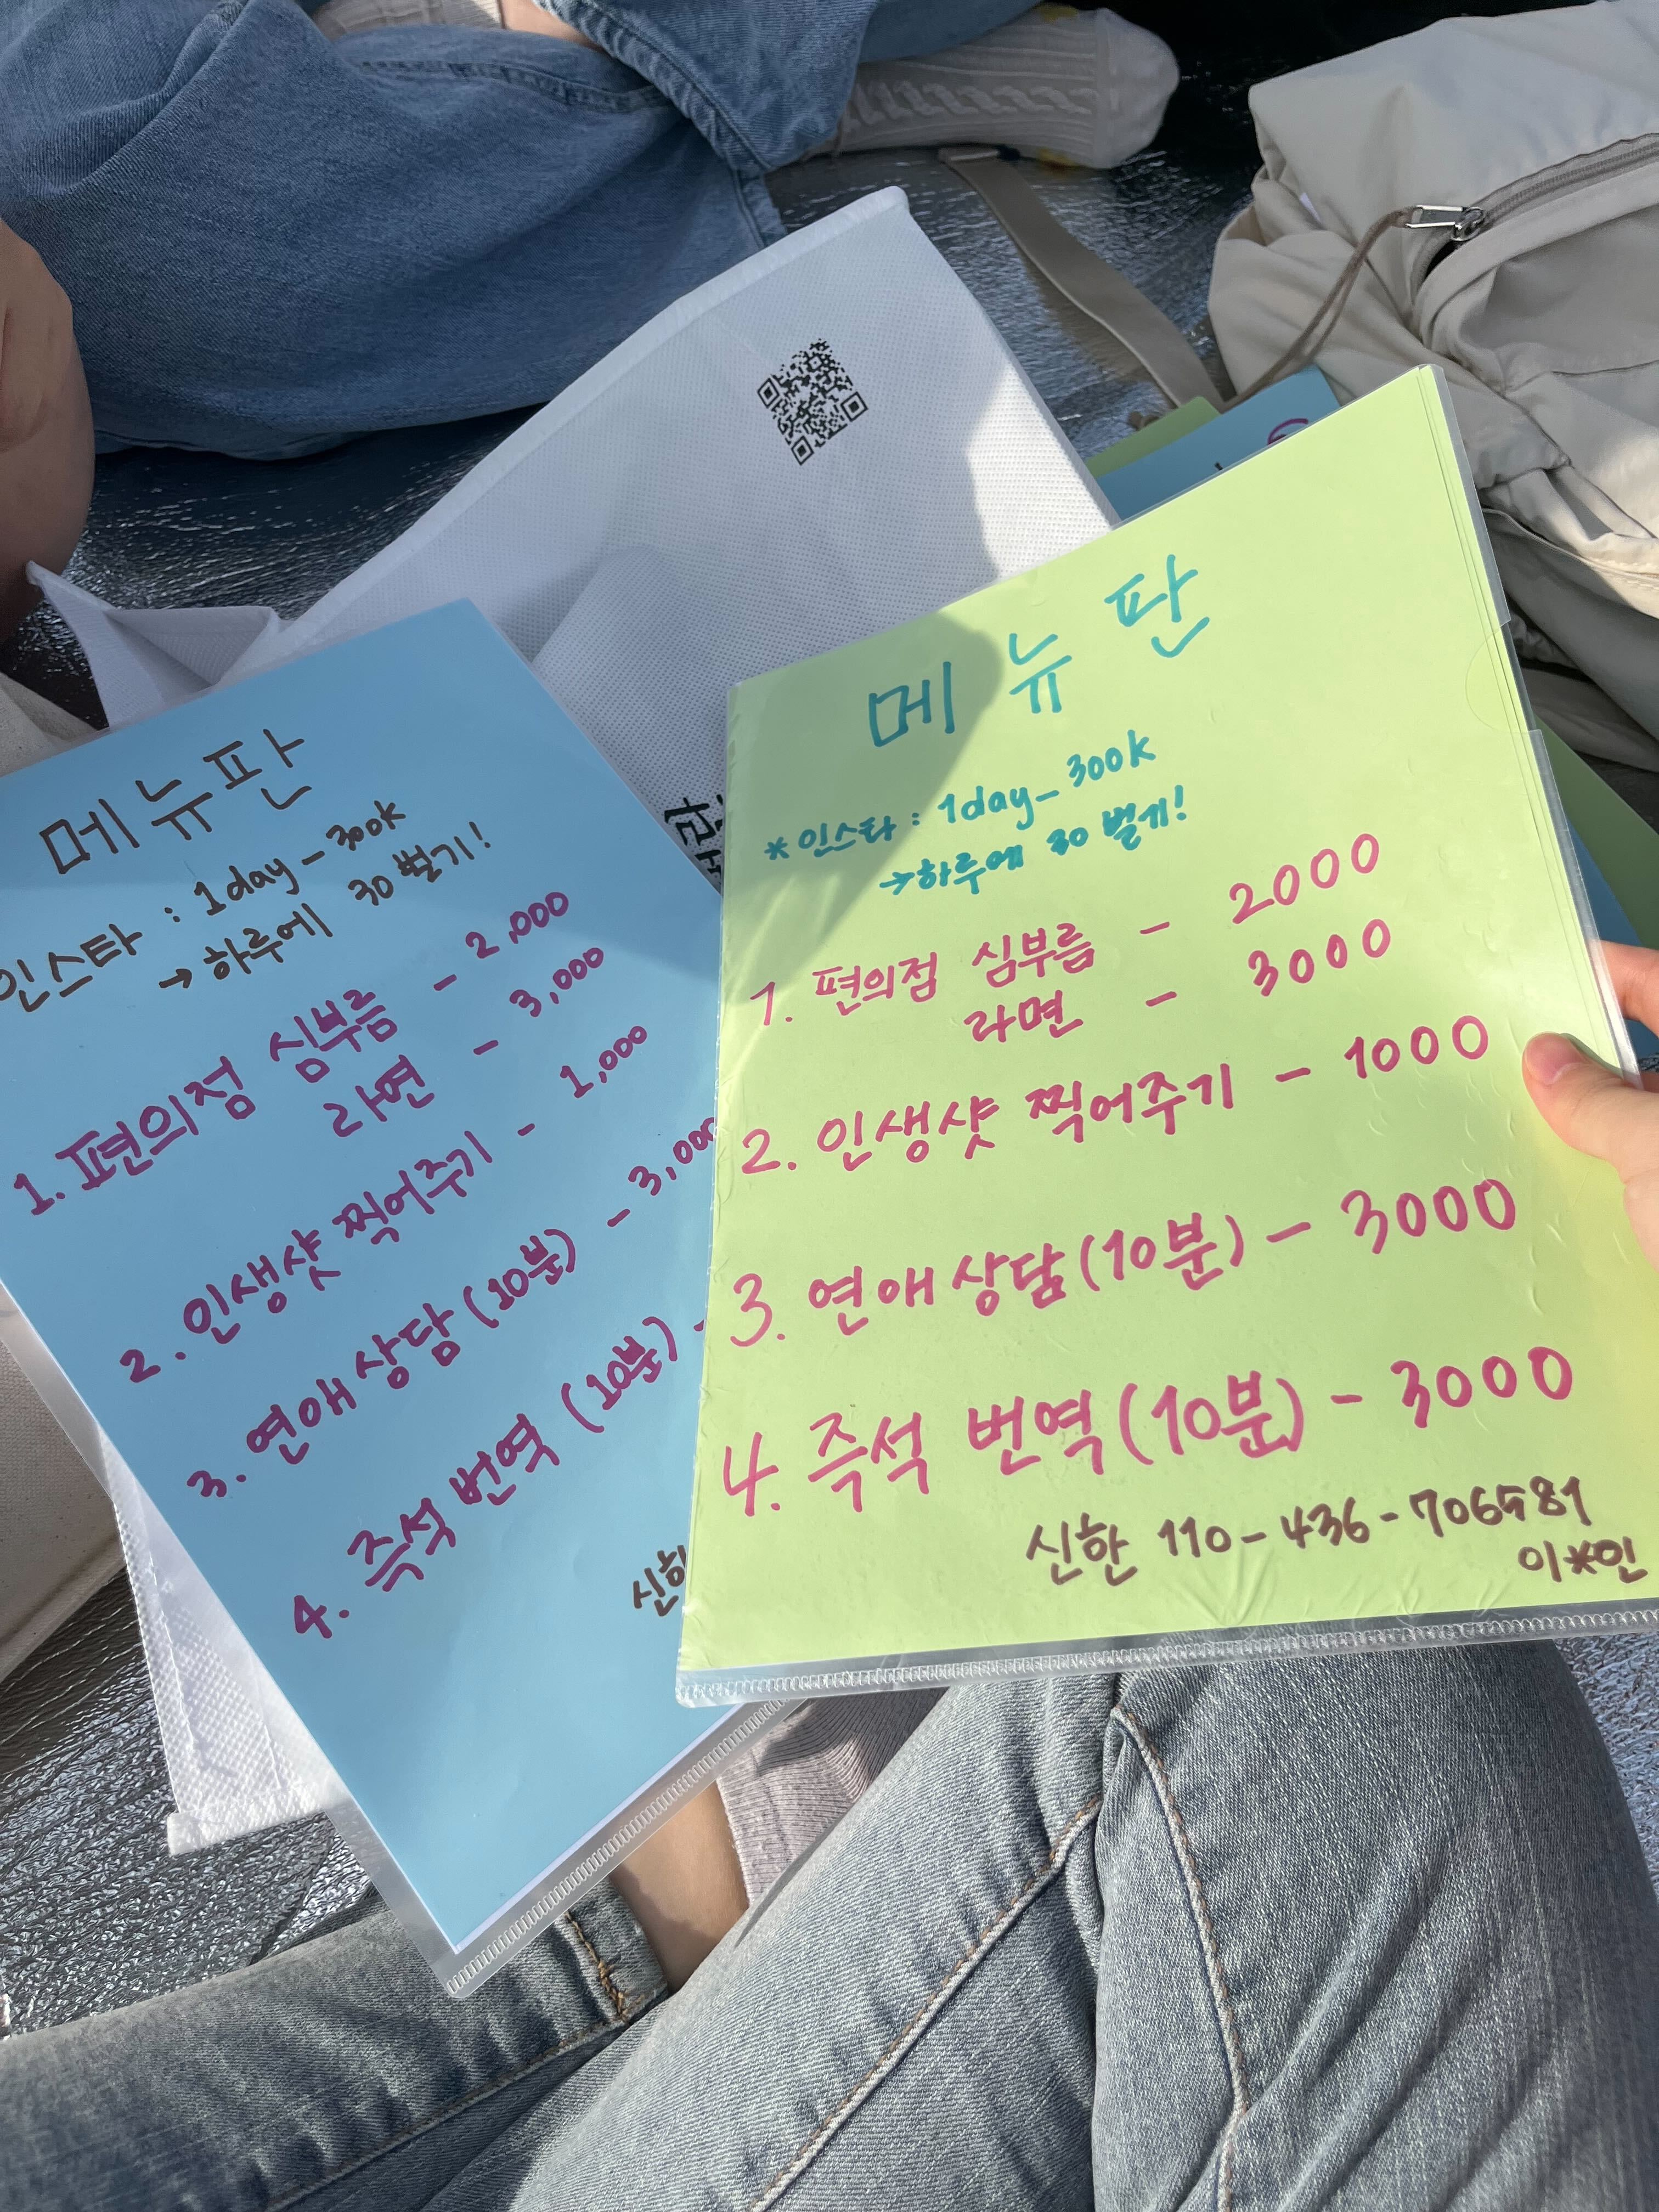 메뉴판
인스타 : 1day_300k
→ 하루에 30 벌기!
1. 편의점 심부름 - 2,000
라면 - 3,000
2. 인생샷 찍어주기 - 1,000
3. 연애 상담 (10분) - 3,000
4. 즉석 번역 (10분) -
신한
메뉴판
* 인스타 : 1day_300k
→ 하루에 30 벌기!
1. 편의점 심부름 - 2000
라면 - 3000
2. 인생샷 찍어주기 - 1000
3. 연애 상담 (10분) - 3000
4. 즉석 번역 (10분) - 3000
신한 110-436-706581
이*인